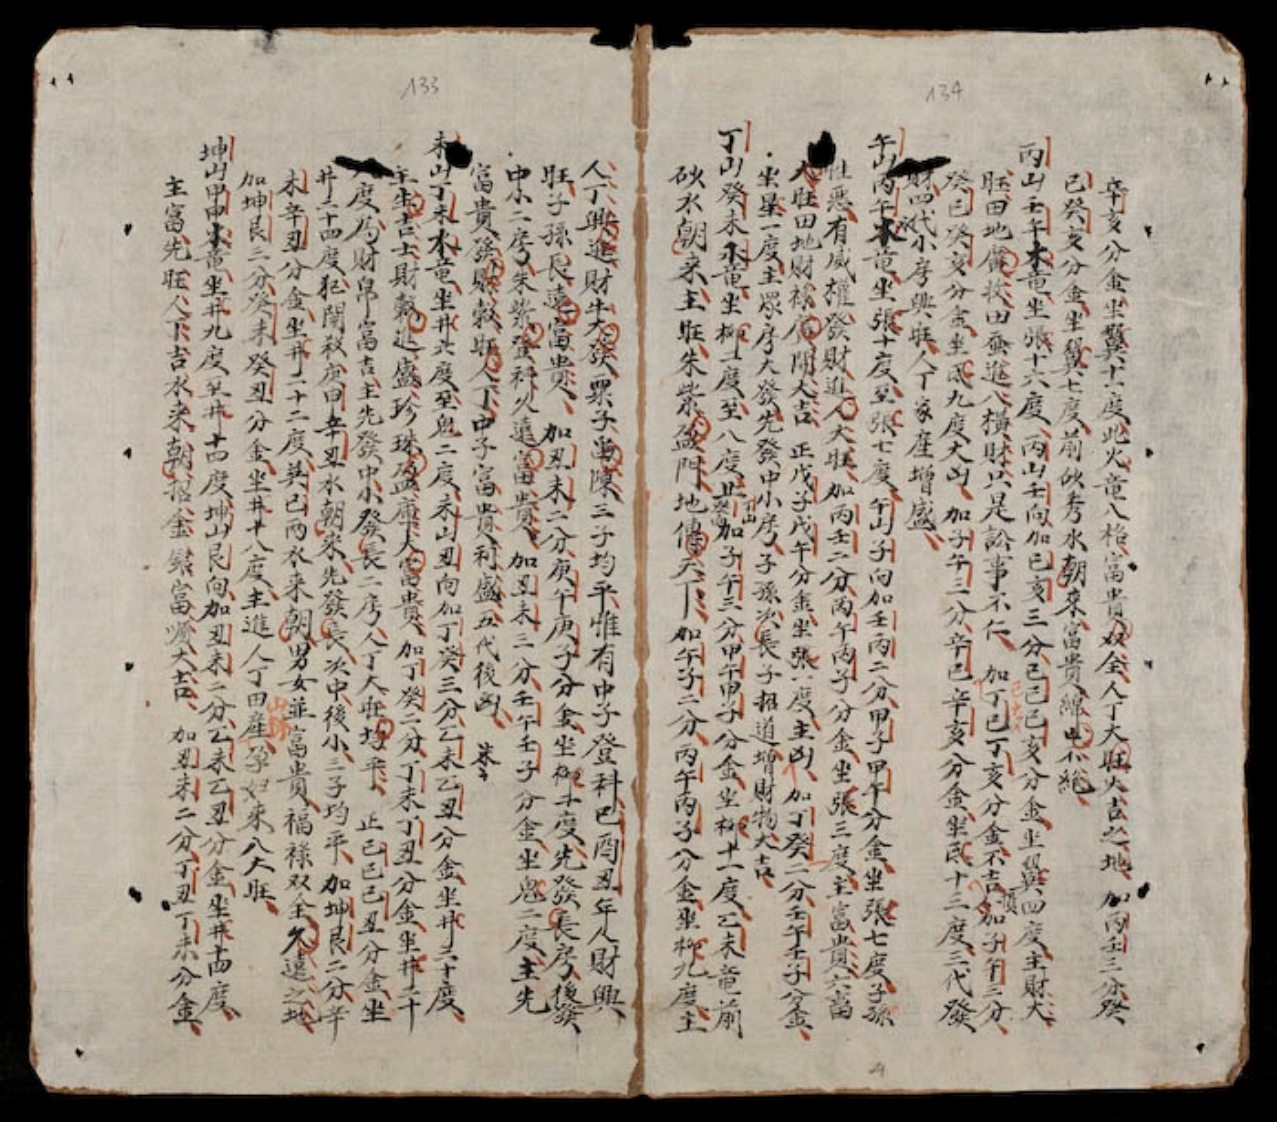 134
辛亥分金坐翼十一度此火竜八格富貴双全人丁大旺大吉之地加丙壬三分癸
巳癸亥分金坐翼七度前砂秀水朝来富貴綿 不絶
丙山壬午木竜坐張十六度丙山壬向加已亥三分已已已亥分金坐翼四度主財大
旺田地 牧田蚕進八橫財只是訟事不仁 加丁巳丁亥分金不吉 加子午三分
癸已癸亥分金坐 九度大凶加子午二分辛已辛亥分金坐 十二度三代發
財四代小房興旺人丁家産增盛
午山丙午木竜坐張十度至張七度午山子向加壬丙二分甲子甲午分金坐張七度子孫
性惡有威權發財進人大旺加丙壬二分丙午丙子分金坐張三度主富貴六畜
大旺田地財禄 開大吉 正戊子戊午分金坐張一度主凶加丁癸二分壬午壬子分金
坐星一度主眾房大發先發中小房子孫次長子招道增財物大吉
丁山癸未 竜坐柳二度至八度 丁山 加子午三分甲午甲子分金坐柳十一度乙未竜前
砂水朝来主旺朱紫盈門地傳天下加午子二分丙午丙子分金坐柳九度主
4
133
人丁興進財牛大發眾子 陳三子均平惟有中子登科巳酉丑年人財興
旺子孫長遠富貴 加丑未二分庚午庚子分金坐柳 度先發長房後發
中小二房朱紫登科久遠富貴 加丑未三分壬午壬子分金坐鬼二度主先
富貴發財穀旺人丁中子富貴利盛五代後凶
未山丁未木竜坐井六度至鬼二度未山丑向加丁癸三分乙未乙丑分金坐井三十度
主生吉士財穀進盛珍珠盈庫大富貴加丁癸二分丁未丁丑分金坐井二十
度為財帛富吉主先發中小發長二房人丁大旺均平 正已已已丑分金坐
井二十四度犯関殺庚申辛丑水朝来先發長次中後小三子均平加坤艮二分辛
未辛丑分金坐井二十二度 已丙水来朝男女並富貴福禄双全久遠之地
加坤艮三分癸未癸丑分金坐井十八度主進人丁田産 来八大旺
坤山甲申水竜坐井九度至井十四度坤山艮向加丑未二分乙未乙丑分金坐井十四度
主富先旺人丁吉水来朝 金銀富 大吉 加丑未二分丁丑丁未分金